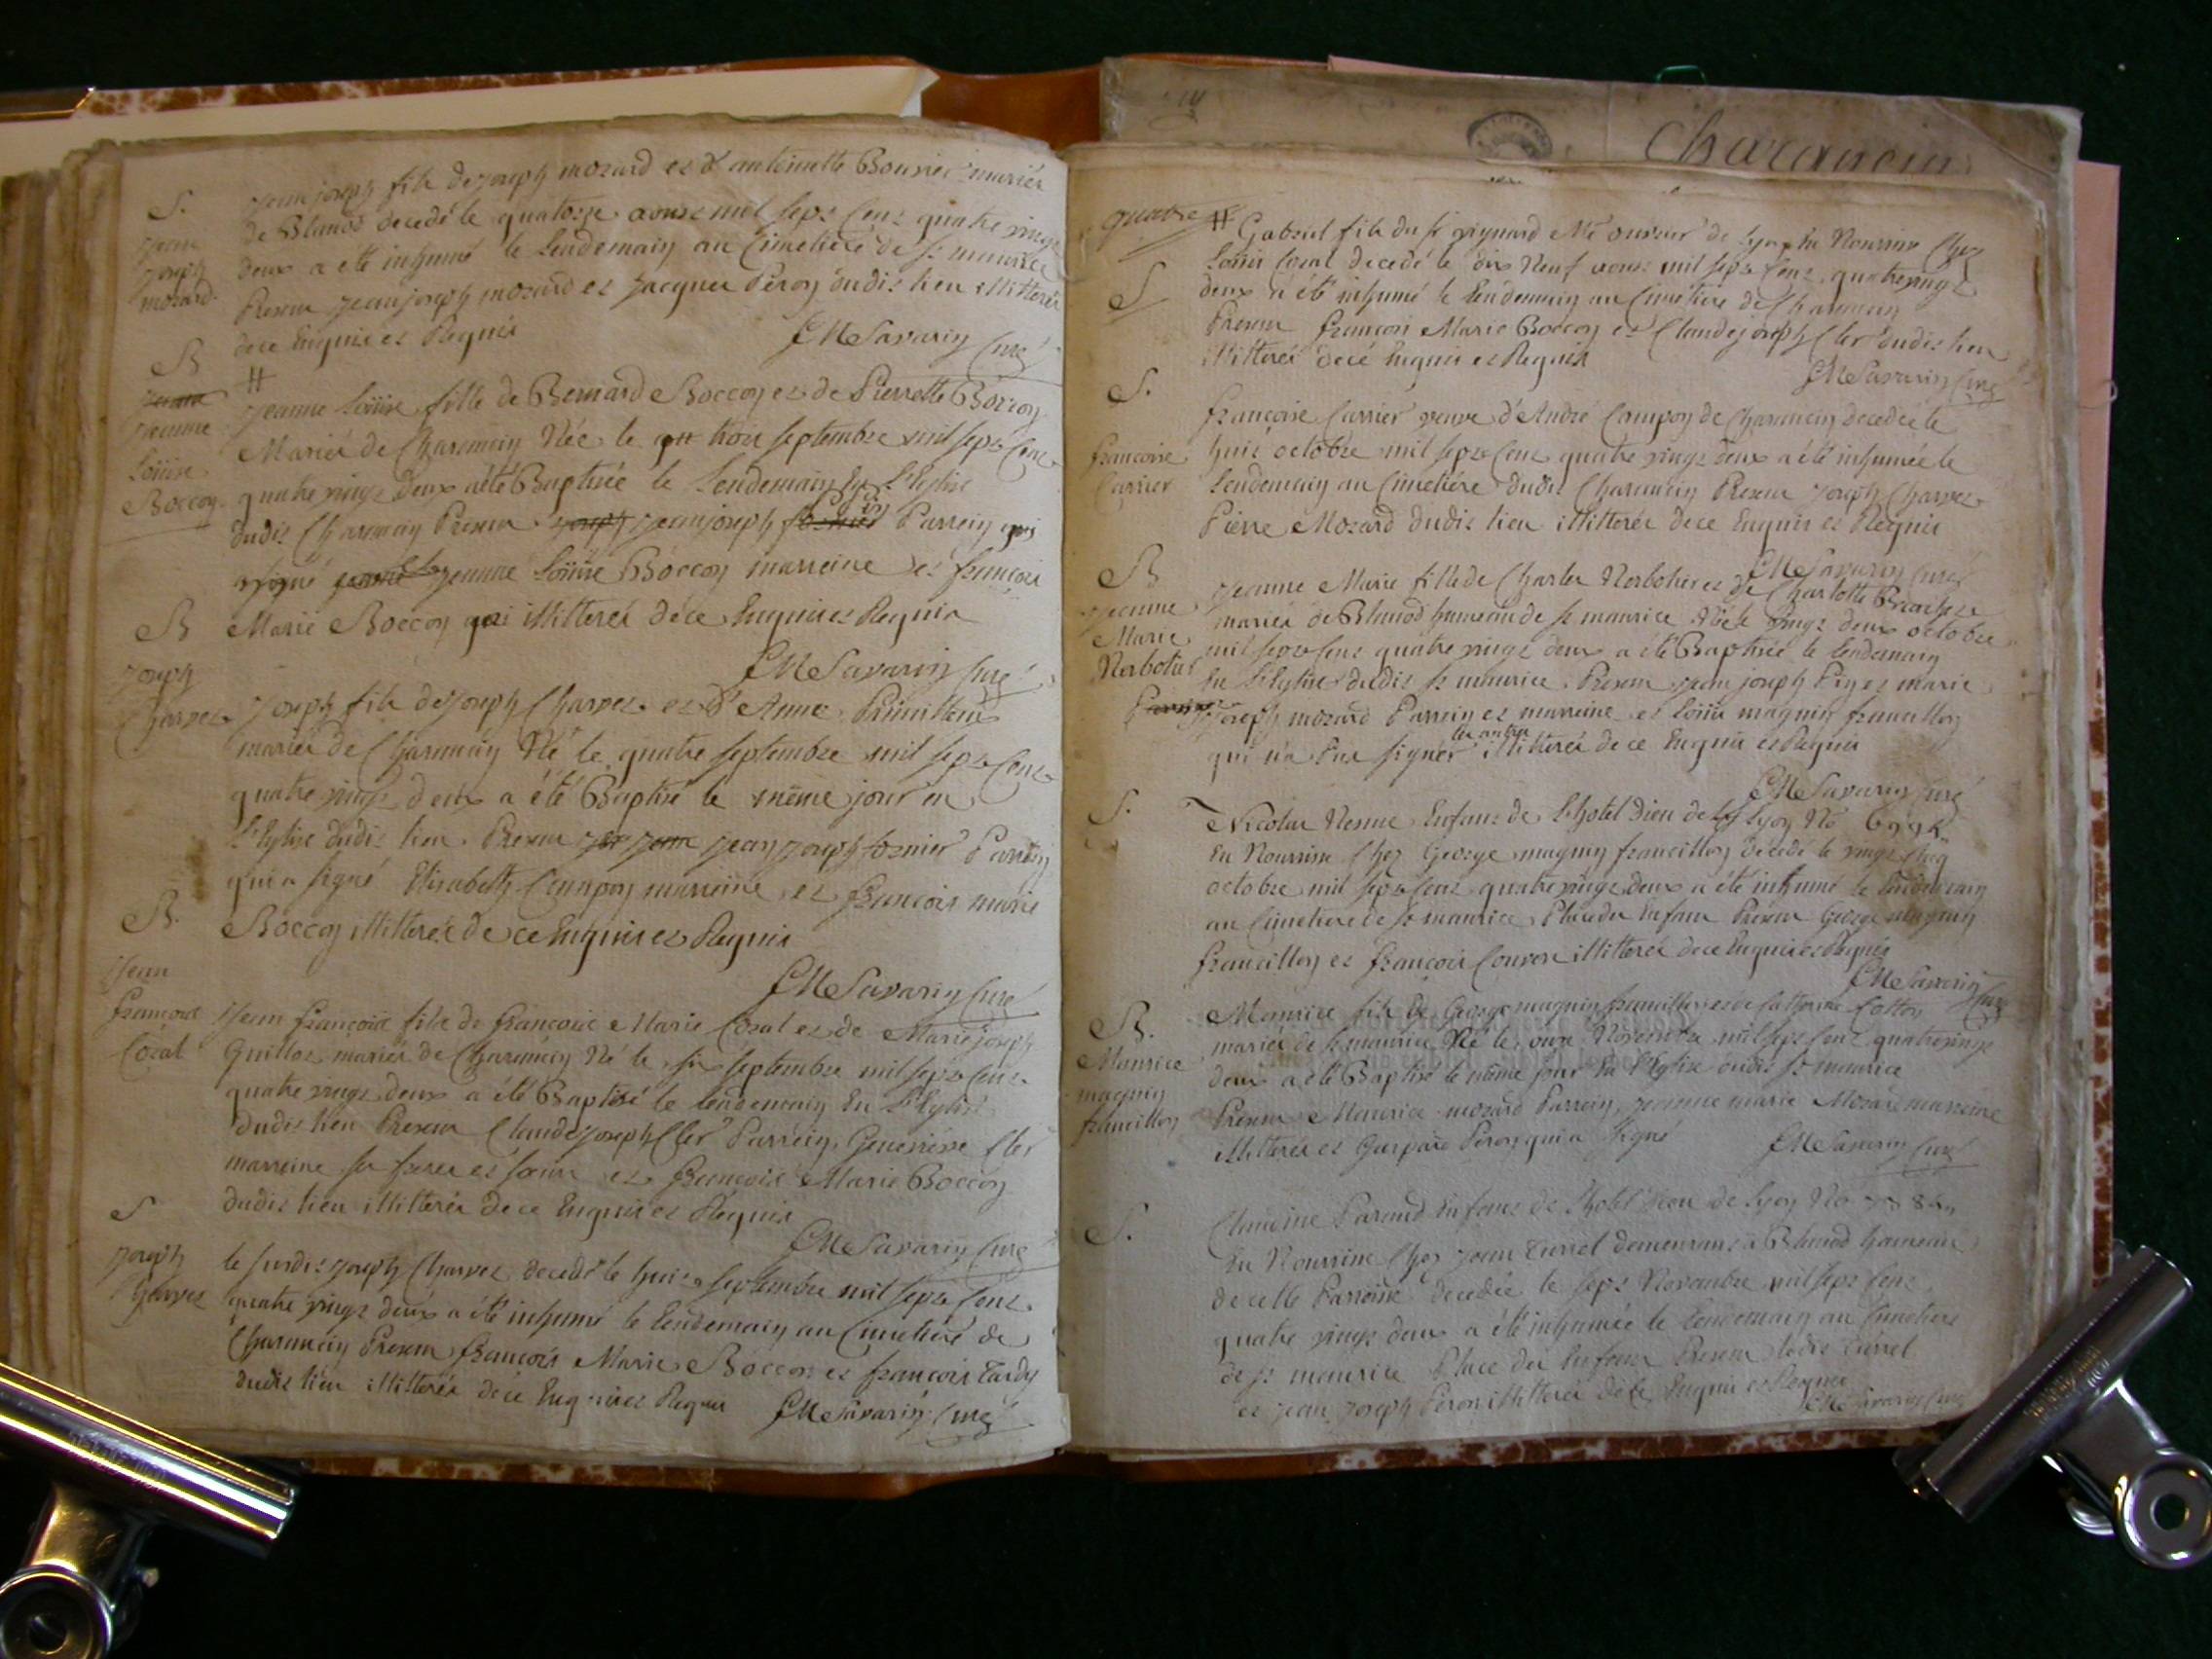 S.
Jean
Joseph
mozard.
Jean joseph fils de joseph mozard et d'antoinette Bouvier mariés
de Blanod decedé le quatorze aoust mil sept Cent quatre vingt
deux a été inhumé le Lendemain au Cimetiére de St maurice
Presens jean joseph mozard et jacques Péron dudit lieu illitterés
de ce Enquis et Requis
CM Savarin Curé
B
Jeanne
Loüise
Boccon
#
Jeanne Loüise fille de Bernard Boccon et de Pierrette Boccon
Mariés de Charancin Née le trois septembre mil sept Cent
quatre vingt deux a été Baptisée le Lendemain En L'Eglise
dudit Charancin Presens jean joseph Parrein qui
Signé jeanne Loüise Boccon marreine et françois
Marie Boccon illitterés de ce Enquis et Requis
CM Savarin Curé
B
Joseph
Charvet
Joseph fils de Joseph Charvet et D'Anne
mariés de Charancin Né le quatre septembre mil sept Cent
quatre vingt deux a été Baptisé le même jour en
L'Eglise dudit lieu. Presens jean joseph fornier Parrein
qui a signé Elisabeth Campon marreine et françois marie
Boccon illitterés de ce Enquis et Requis
CM Savarin Curé
B.
Jean
françois
Cozat
Jean françois fils de françois Marie Cozat et de Marie joseph
Guillot mariés de Charancin Né le six septembre mil sept Cent
quatre vingt deux a été Baptisé le Lendemain En L'Eglise
dudit lieu Presens Claude joseph Cler Parrein, Genevieve Cler
marreine ses frere et soeur et françois Marie Boccon
dudit lieu illitterés de ce Enquis et Requis
CM Savarin Curé
S
Joseph
Charvet
le susdit joseph Charvet decedé le huit septembre mil sept Cent
quatre vingt deux a été inhumé le Lendemain au Cimetiere de
Charancin Presens françois Marie Boccon et françois tardy
dudit lieu illitterés de ce Enquis et Requis
CM Savarin Curé
Charancin
quatre
S
# Gabriel fils du Sr Me de Lyon En Nourrice Chez
Loüis Cozat decedé le dix Neuf aoust mil sept Cent quatre vingt
deux a été inhumé le Lendemain au Cimetiere de Charancin
Presens françois Marie Boccon et Claude joseph Cler dudit lieu
illitterés de ce Enquis et Requis
CM Savarin Curé
S.
francoise
Carrier
françoise Carrier veuve d'André Campon de Charancin decedée le
huit octobre mil sept Cent quatre vingt deux a été inhumée le
Lendemain au Cimetiére dudit Charancin Presens joseph Charvet
Pierre Mozard dudit lieu illitterés de ce Enquis et Requis
CM Savarin Curé
B
Jeanne
Marie
Nerbotier
Jeanne Marie fille de Charles Nerbotier et de Charlotte
mariés de Blanod hameau de St maurice Née le vingt deux octobre
mil sept Cent quatre vingt deux a été Baptisée le Lendemain
En L'Eglise dudit St maurice. Presens jean joseph et marie
joseph mozard Parrein et marreine et Loüis magnin francillon
qui n'a sçu signer les autres illitterés de ce Enquis et Requis
CM Savarin Curé
S.
Nicolas Enfant de L'hotel Dieu de Lyon No
En Nourrice Chez George magnin francillon decedé le vingt Cinq
octobre mil sept Cent quatre vingt deux a été inhumé le Lendemain
au Cimetiere de St maurice Place des Enfans Presens George magnin
francillon et françois Convert illitterés de ce Enquis et Requis
CM Savarin Curé
B.
Maurice
magnin
francillon
Maurice fils de George magnin francillon et de Catherine
mariés de St maurice Né le onze Novembre mil sept Cent quatre vingt
deux a été Baptisé le même jour En L'Eglise dudit St maurice
Presens Maurice mozard Parrein, jeanne marie Mozard marreine
illitterés et Gaspard Péron qui a signé
CM Savarin Curé
S.
Claudine Enfant de L'hotel Dieu de Lyon No
En Nourrice Chez jean turrel demeurant a Blanod hameau
de cette Parroisse decedée le sept Novembre mil sept Cent
quatre vingt deux a été inhumée le Lendemain au Cimetiere
de St maurice Place des Enfans Presens ledit turrel
et jean joseph Péron illitterés de ce Enquis et Requis
CM Savarin Curé